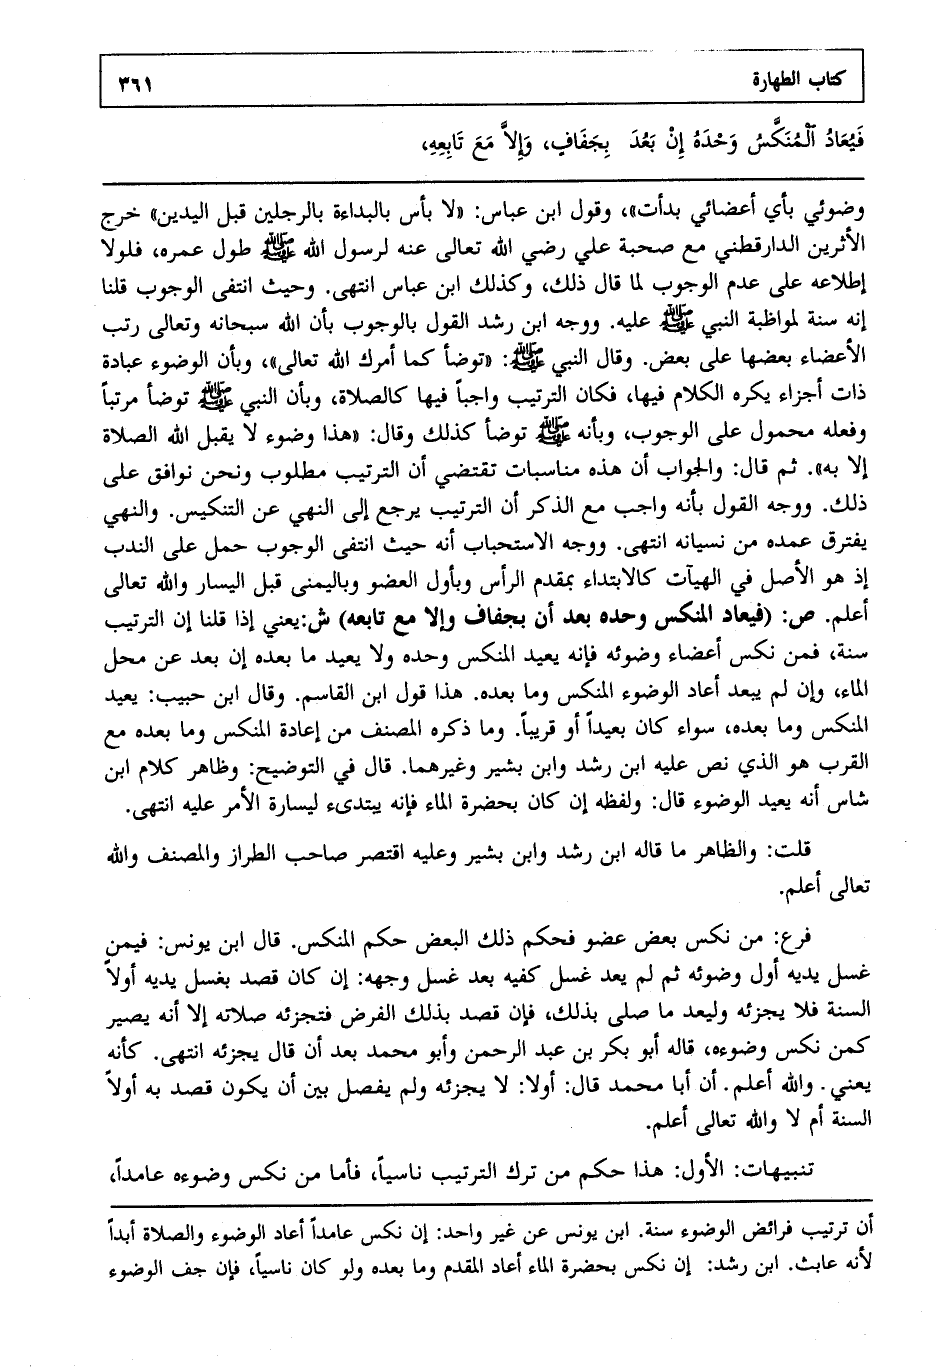 كتاب الطهارة ٣٦١
فَيُعَادُ ٱلْمُنَكَّسُ وَحْدَهُ إِنْ بَعُدَ بِجَفَافٍ، وَإِلاَّ مَعَ تَابِعِهِ،
وضوئي بأي أعضائي بدأت»، وقول ابن عباس: «لا بأس بالبداءة بالرجلين قبل اليدين» خرج
الأثرين الدارقطني مع صحبة علي رضي الله تعالى عنه لرسول الله ﷺ طول عمره، فلولا
إطلاعه على عدم الوجوب لما قال ذلك، وكذلك ابن عباس انتهى. وحيث انتفى الوجوب قلنا
إنه سنة لمواظبة النبي ﷺ عليه. ووجه ابن رشد القول بالوجوب بأن الله سبحانه وتعالى رتب
الأعضاء بعضها على بعض. وقال النبي ﷺ: «توضأ كما أمرك الله تعالى»، وبأن الوضوء عبادة
ذات أجزاء يكره الكلام فيها، فكان الترتيب واجباً فيها كالصلاة، وبأن النبي ﷺ توضأ مرتباً
وفعله محمول على الوجوب، وبأنه ﷺ توضأ كذلك وقال: «هذا وضوء لا يقبل الله الصلاة
إلا به». ثم قال: والجواب أن هذه مناسبات تقتضي أن الترتيب مطلوب ونحن نوافق على
ذلك. ووجه القول بأنه واجب مع الذكر أن الترتيب يرجع إلى النهي عن التنكيس. والنهي
يفترق عمده من نسيانه انتهى. ووجه الاستحباب أنه حيث انتفى الوجوب حمل على الندب
إذ هو الأصل في الهيآت كالابتداء بمقدم الرأس وبأول العضو وباليمنى قبل اليسار والله تعالى
أعلم. ص: (فيعاد المنكس وحده بعد أن بجفاف وإلا مع تابعه) ش:يعني إذا قلنا إن الترتيب
سنة، فمن نكس أعضاء وضوئه فإنه يعيد المنكس وحده ولا يعيد ما بعده إن بعد عن محل
الماء، وإن لم يبعد أعاد الوضوء المنكس وما بعده. هذا قول ابن القاسم. وقال ابن حبيب: يعيد
المنكس وما بعده، سواء كان بعيداً أو قريباً. وما ذكره المصنف من إعادة المنكس وما بعده مع
القرب هو الذي نص عليه ابن رشد وابن بشير وغيرهما. قال في التوضيح: وظاهر كلام ابن
شاس أنه يعيد الوضوء قال: ولفظه إن كان بحضرة الماء فإنه يبتدىء ليسارة الأمر عليه انتهى.
قلت: والظاهر ما قاله ابن رشد وابن بشير وعليه اقتصر صاحب الطراز والمصنف والله
تعالى أعلم.
فرع: من نكس بعض عضو فحكم ذلك البعض حكم المنكس. قال ابن يونس: فيمن
غسل يديه أول وضوئه ثم لم يعد غسل كفيه بعد غسل وجهه: إن كان قصد بغسل يديه أولاً
السنة فلا يجزئه وليعد ما صلى بذلك، فإن قصد بذلك الفرض فتجزئه صلاته إلا أنه يصير
كمن نكس وضوءه، قاله أبو بكر بن عبد الرحمن وأبو محمد بعد أن قال يجزئه انتهى. كأنه
يعني. والله أعلم. أن أبا محمد قال: أولا: لا يجزئه ولم يفصل بين أن يكون قصد به أولاً
السنة أم لا والله تعالى أعلم.
تنبيهات: الأول: هذا حكم من ترك الترتيب ناسياً، فأما من نكس وضوءه عامداً،
أن ترتيب فرائض الوضوء سنة. ابن يونس عن غير واحد: إن نكس عامداً أعاد الوضوء والصلاة أبداً
لأنه عابث. ابن رشد: إن نكس بحضرة الماء أعاد المقدم وما بعده ولو كان ناسياً، فإن جف الوضوء